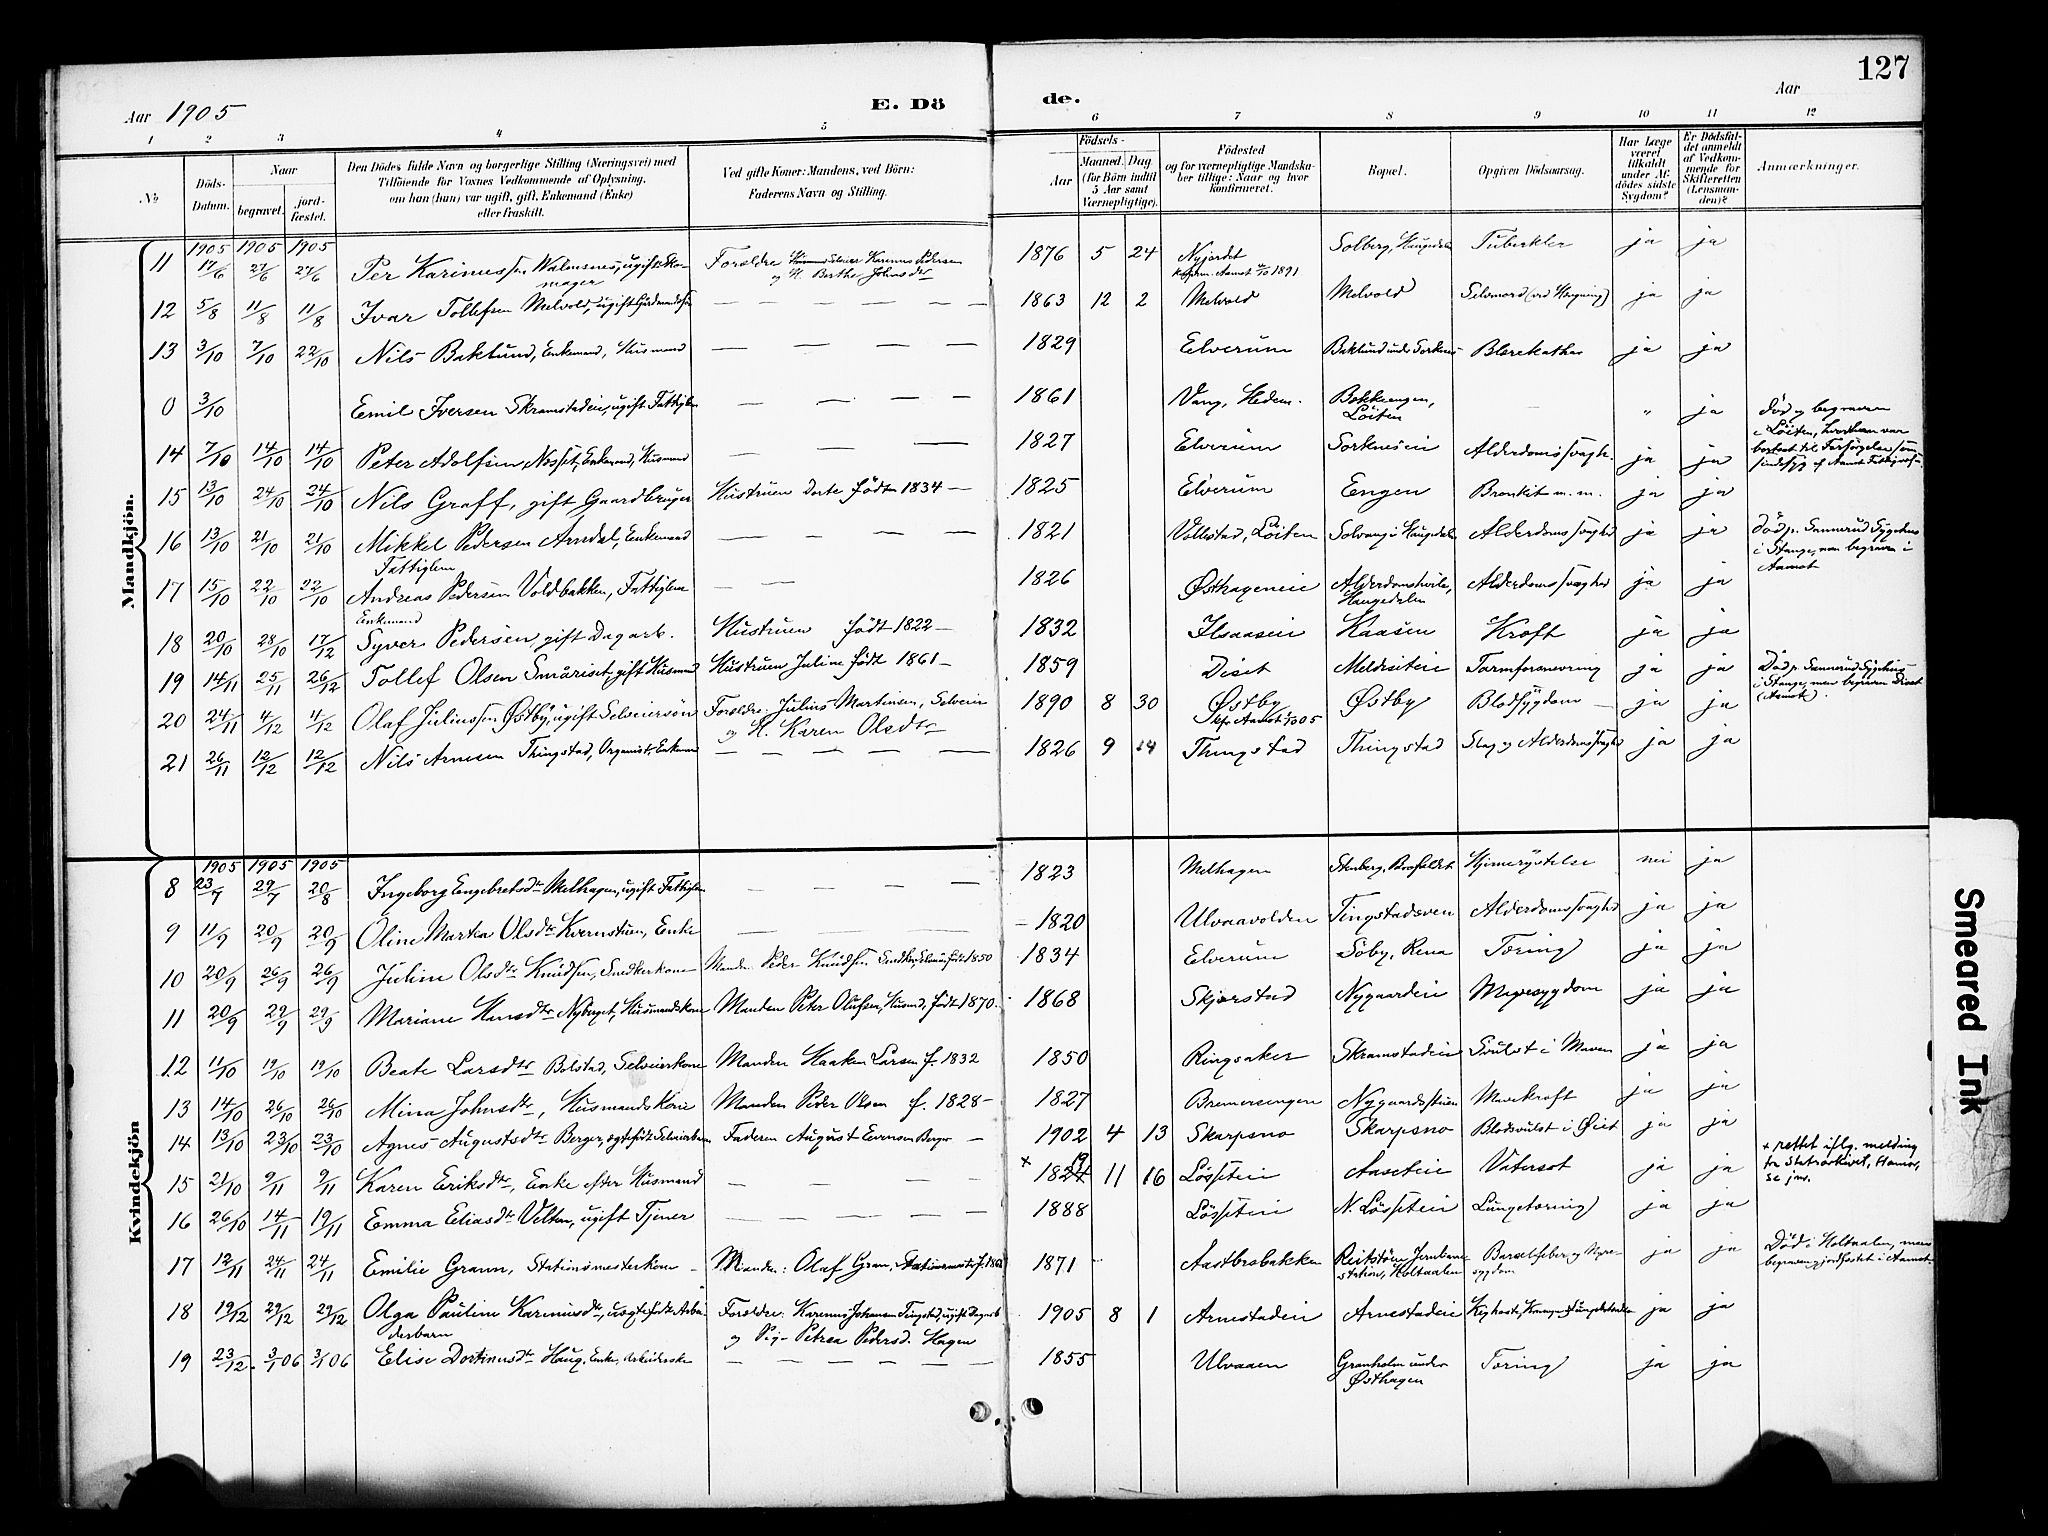 127
Aar 1905
E. Dö
de.
Aar
1 2 3 4 5 6 7 8 9 10 11 12
No
Döds-Datum.
Naar
begravet.
jordfæstet.
Den Dödes fulde Navn og borgerlige Stilling (Næringsvei) med
Tilföiende for Voxnes Vedkommende af Oplysning,
om han (hun) var ugift, gift, Enkemand (Enke)
eller fraskilt.
Ved gifte Koner: Mandens, ved Börn:
Faderens Navn og Stilling.
Födsels-
Aar
Maaned. Dag
(for Börn indtil
5 Aar samt
Værnepligtige).
Födested
og for værnepligtige Mandskaber tillige: Naar og hvor
konfirmeret.
Bopæl.
Opgiven Dödsaarsag.
Har Læge
været
tilkaldt
under Afdödes sidste
Sygdom?
Er Dödsfaldet anmeldt
af Vedkommende for
Skifteretten
(Lensmanden)?
Anmærkninger.
Mandkjön.
1905 1905 1905
11 17/6 27/6 27/6 Per Karinussen Walmsnes, ugift Skomager Forældre Karinus Pedersen og H. Berthe Johnsdtr 1876 5 24 Nyjordet Konfirm. Aamot 1891 Solberg, Haugedalen Tuberkler ja ja
12 5/8 11/8 11/8 Ivar Tollefsen Melvold, ugift Gårdmandssøn — — — 1863 12 2 Melvold Melvold Selvmord (ved Hængning) ja ja
13 3/10 7/10 22/10 Nils Baklund, Enkemand, Husmand — — — 1829 Elverum Baklund under Sorknes Blærekathar ja ja
0 3/10 Emil Iversen Skramstadeie, ugift Fattiglem — — — 1861 Vang, Hedem. Bekkeengen, Löiten — " ja död og begraven i Löiten, hvorhen var bortsat til Forsörgelse som sindssyg af Aamot Fattigvæs.
14 7/10 14/10 14/10 Peter Adolfsen Næsset, Enkemand, Husmand — — — 1827 Elverum Sorkneseie Alderdomssvagh. ja ja
15 13/10 24/10 24/10 Nils Graff, gift Gaardbruger Hustruen Dorte född 1834 — 1825 Elverum Engen Bronkit m. m. ja ja
16 13/10 21/10 21/10 Mikkel Pedersen Arndal, Enkemand Fattiglem — — — 1821 Vollestad, Löiten Solvang i Haugedalen Alderdomssvaghed ja ja Död p. Sannerud Sygehus i Stange, men begraven i Aamot
17 15/10 22/10 22/10 Andreas Pedersen Voldbakken, Fattiglem Enkemand — — 1826 Østhageneie Alderdomshvile, Haugedalen Alderdomssvaghed ja ja
18 20/10 28/10 17/12 Syver Pedersen, gift Dagarb. Hustruen født 1822 — 1832 Ilsaaseie Kaasen Kræft ja ja
19 14/11 25/11 26/12 Tollef Olsen Småriset, gift Husmand Hustruen Juline født 1861 — 1859 Diset Meldseteie Tarmforsnevring ja ja Död p. Sannerud Sygehus i Stange, men begraven Diset (Aamot).
20 24/11 4/12 4/12 Olaf Juliussen Østby, ugift Selveiersön Forældre: Julius Martinsen, Selveier og H. Karen Olsdtr 1890 8 30 Østby Kf. Aamot 1905 Østby Blodsygdom — ja ja
21 26/11 12/12 12/12 Nils Arnesen Thingstad, Organist, Enkemand — — — 1826 9 14 Thingstad Thingstad Slag og Alderdomssvaghed ja ja
Kvindekjön
1905 1905 1905
8 23/7 29/7 20/8 Ingeborg Engebretsdtr Melhagen, ugift Fattiglem — — — 1823 Melhagen Stenberg, Hjernerystelse nei ja
9 11/9 20/9 20/9 Oline Martea Olsdtr Kvernstuen, Enke — — — 1820 Ulvaavolden Tingstadsven Alderdomssvaghed ja ja
10 20/9 26/9 26/9 Juline Olsdtr Knudsen, Snedkerkone Manden Peder Knudsen, Snedker, født 1850 1834 Elverum Söby, Rena Tæring ja ja
11 20/9 29/9 29/9 Mariane Hansdtr Nyberget, Husmandskone Manden Peter Olufsen, Husmd, født 1870 1868 Skjærstad Nygaardeie Nyresygdom ja ja
12 11/10 19/10 19/10 Beate Larsdtr Bolstad, Selveierkone Manden Haaken Larsen f. 1832 1850 Ringsaker Skramstadeie Svulst i Maven ja ja
13 14/10 26/10 26/10 Mina Johnsdtr, Husmandskone Manden Peder Olsen f. 1828 — 1827 Bremersengen Nygaardsstuen Mavekræft ja ja
14 13/10 23/10 23/10 Agnes Augustsdtr Berger, ægtefødt Selveierbarn Faderen August Evensen Berger — 1902 4 13 Skarpsno Skarpsno Blodsvulst i Øiet ja ja
15 21/10 9/11 9/11 Karen Eriksdtr, Enke efter Husmand — — — × 1824 19 11 16 Lösseteie Aaseteie Vatersot ja ja × rettet iflg. melding fra Statsarkivet, Hamar, se jnr.
16 26/10 14/11 19/11 Emma Eliasdtr Velten, ugift Tjener — — — 1888 Lösseteie N. Lösseteie Lungetæring ja ja
17 12/11 24/11 24/11 Emilie Gran, Stationsmesterkone — Manden: Olaf Gran, Stationsmester f. 1871 Aastbrobakken Reitstöen Jernbanestation, Holtaalen Barselfeber og Nyresygdom ja ja Död i Holtaalen, men begraven, jordfæstet i Aamot
18 19/12 29/12 29/12 Olga Pauline Karinusdtr, uægtefødt Arbeiderbarn Forældre: Karinus Johansen Tingstad, ugift Dagarb. og Pige Petrea Pedersd. Hagen 1905 8 1 Arnestadeie Arnestadeie Kighoste, Krampe, Lungebetændelse ja ja
19 23/12 3/1 06 3/1 06 Elise Dortinusdtr Haug, Enke, Arbeiderske — — — 1855 Ulvaaen Granholm under Østhagen Tæring ja ja
Smeared Ink